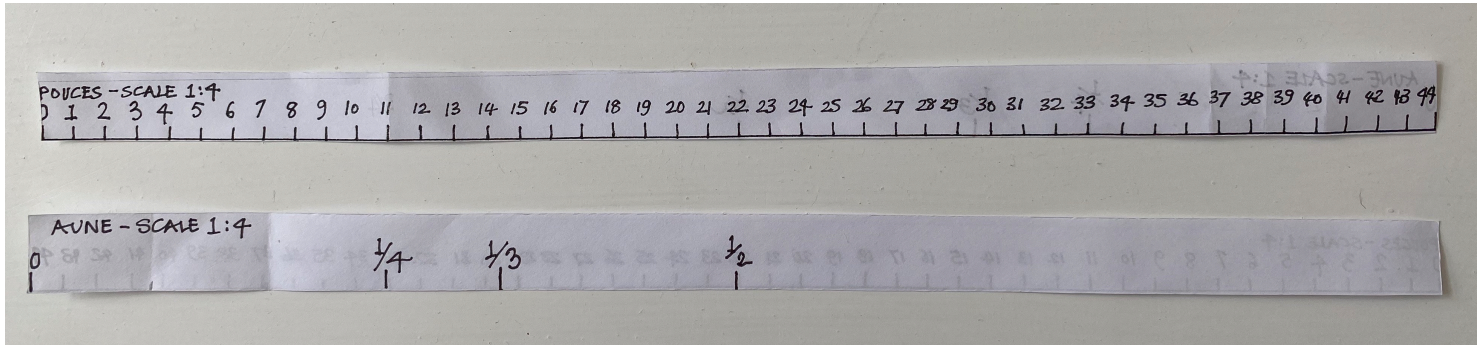 POUCES - SCALE 1:4
0 1 2 3 4 5 6 7 8 9 10 11 12 13 14 15 16 17 18 19 20 21 22 23 24 25 26 27 28 29 30 31 32 33 34 35 36 37 38 39 40 41 42 43 44
AUNE - SCALE 1:4
0 1/4 1/3 1/2